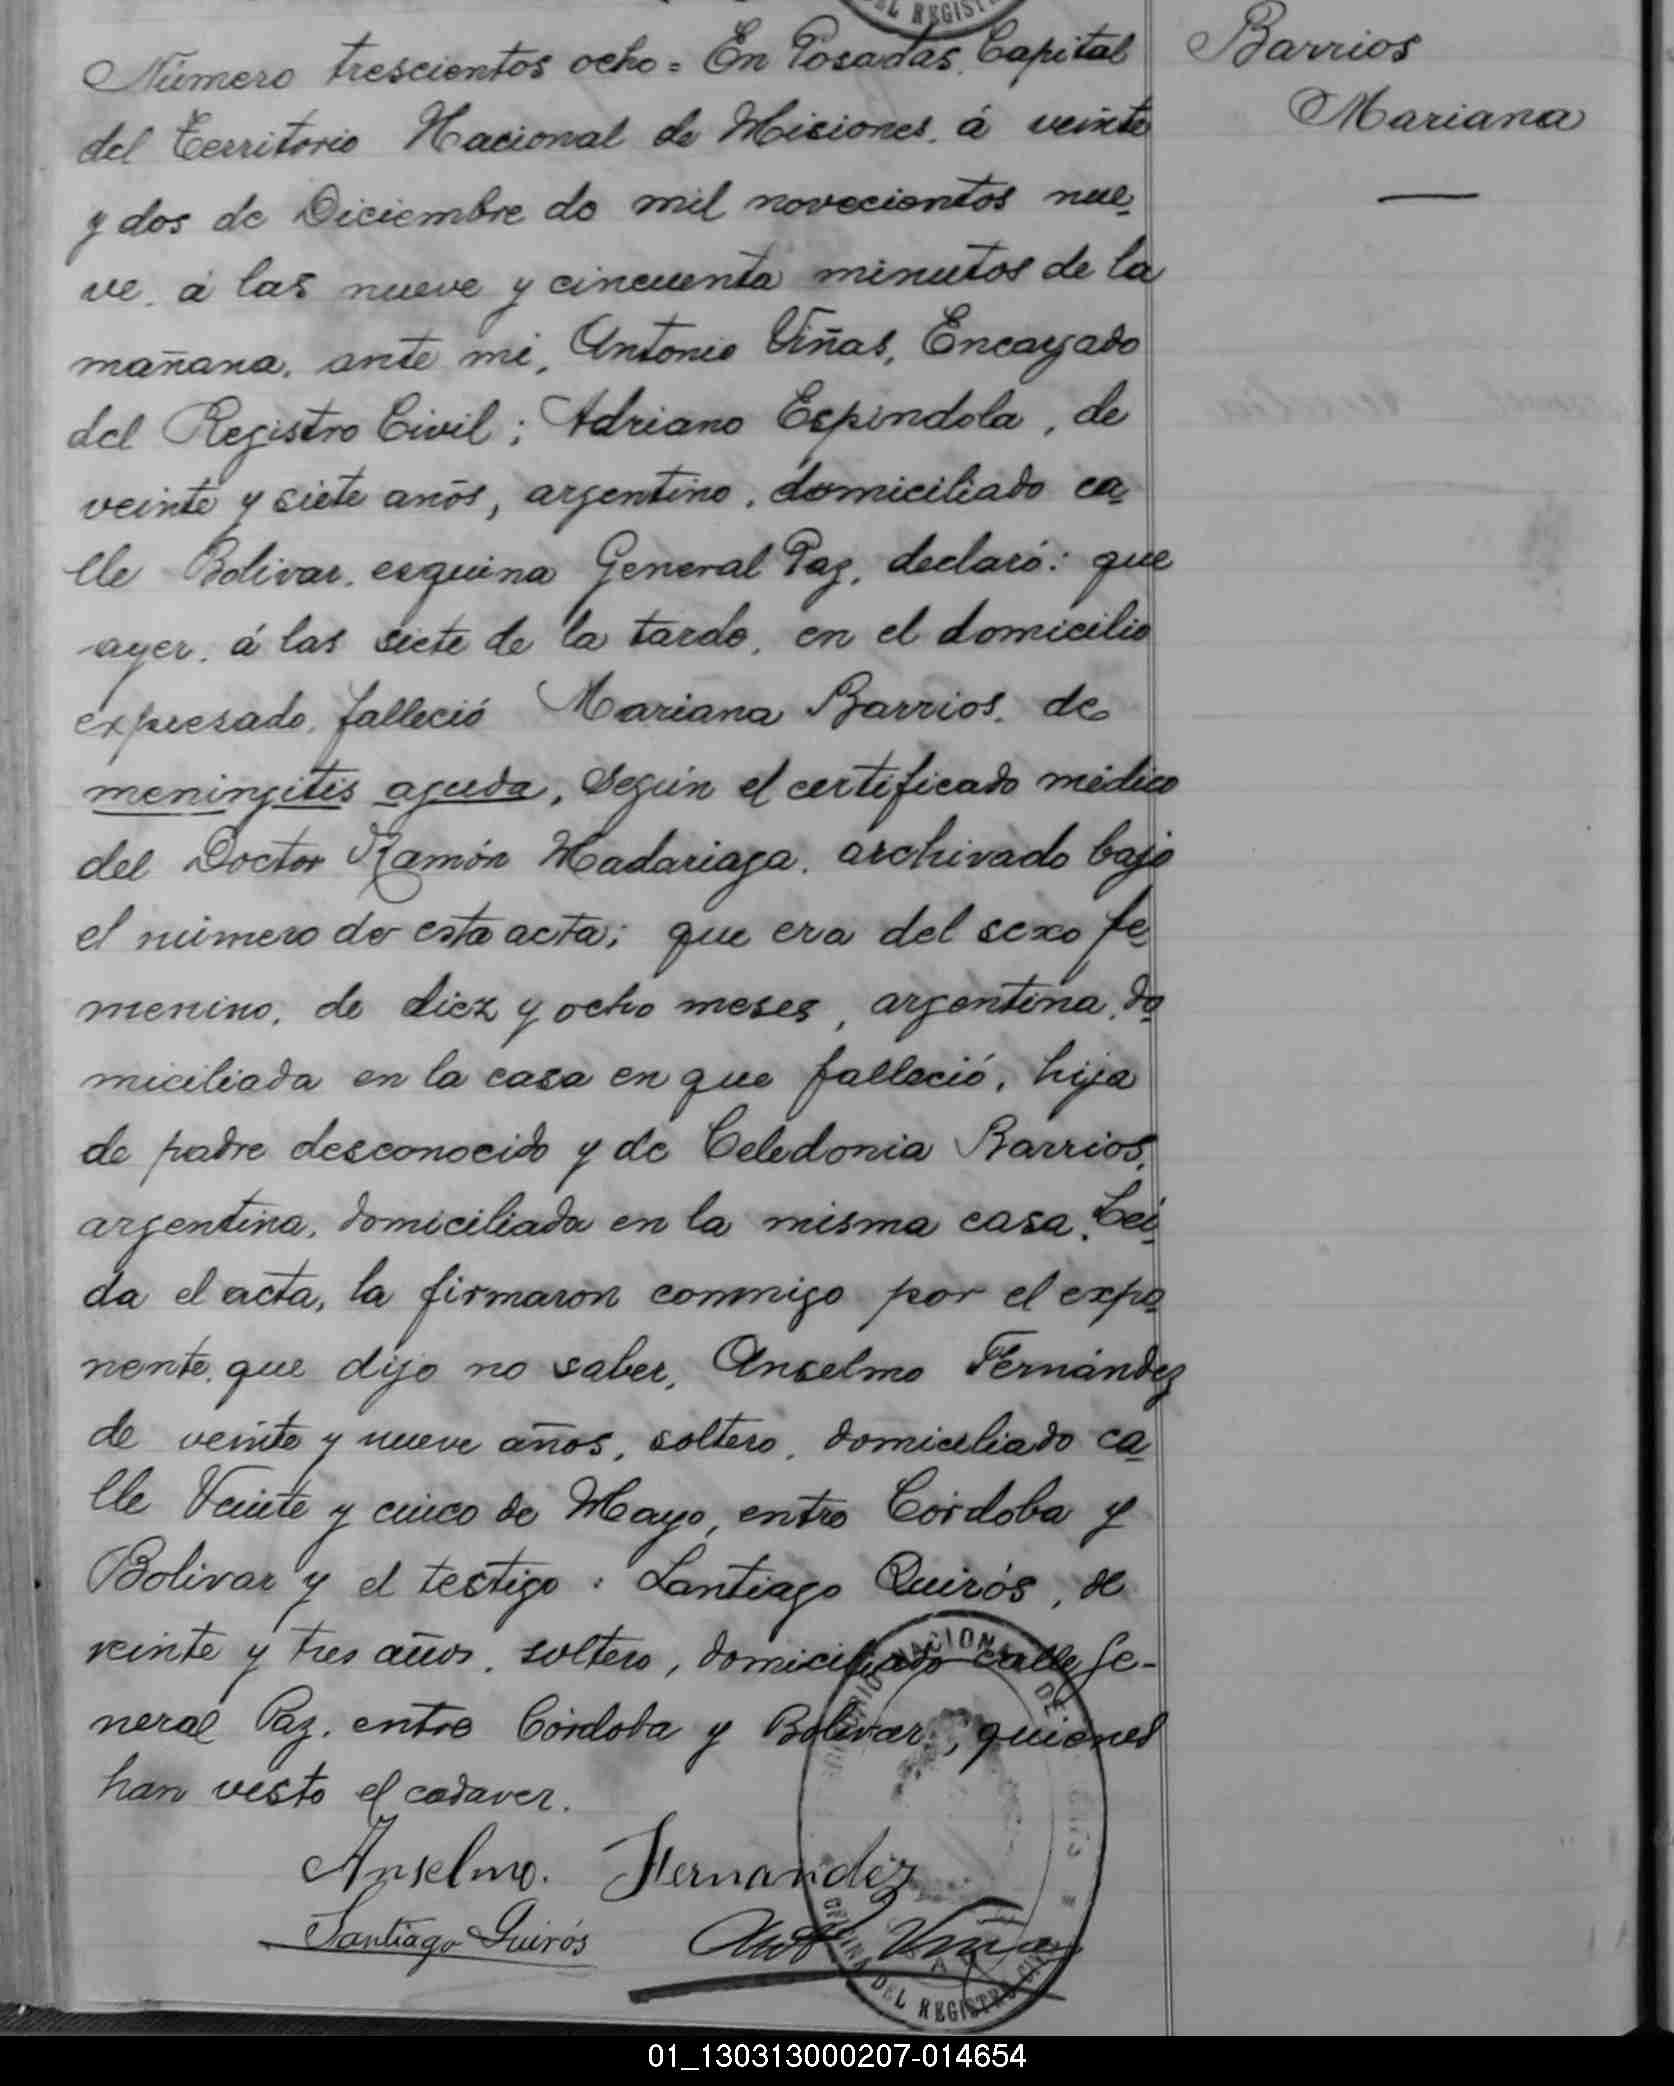 DEL REGIST
Barrios
Mariana
Número trescientos ocho = En Posadas, Capital
del Territorio Nacional de Misiones, á veinte
y dos de Diciembre de mil novecientos nue-
ve, á las nueve y cincuenta minutos de la
mañana, ante mi, Antonio Viñas, Encargado
del Registro Civil; Adriano Espindola, de
veinte y siete años, argentino, domiciliado ca-
lle Bolivar, esquina General Paz, declaró: que
ayer, á las siete de la tarde, en el domicilio
expresado, falleció Mariana Barrios, de
meningitis aguda, según el certificado médico
del Doctor Ramón Madariaga, archivado bajo
el número de esta acta; que era del sexo fe-
menino, de diez y ocho meses, argentina, do-
miciliada en la casa en que falleció, hija
de padre desconocido y de Celedonia Barrios,
argentina, domiciliada en la misma casa. Lei-
da el acta, la firmaron conmigo por el expo-
nente, que dijo no saber, Anselmo Fernández
de veinte y nueve años, soltero, domiciliado ca-
lle Veinte y cinco de Mayo, entre Córdoba y
Bolivar y el testigo: Santiago Quirós, de
veinte y tres años, soltero, domiciliado calle Ge-
neral Paz, entre Córdoba y Bolivar, quienes
han visto el cadaver.
Anselmo. Fernandez
Santiago Quirós Ant Viñas
NACIONAL DE
OFICINA DEL REGISTRO CIVIL
01_130313000207-014654